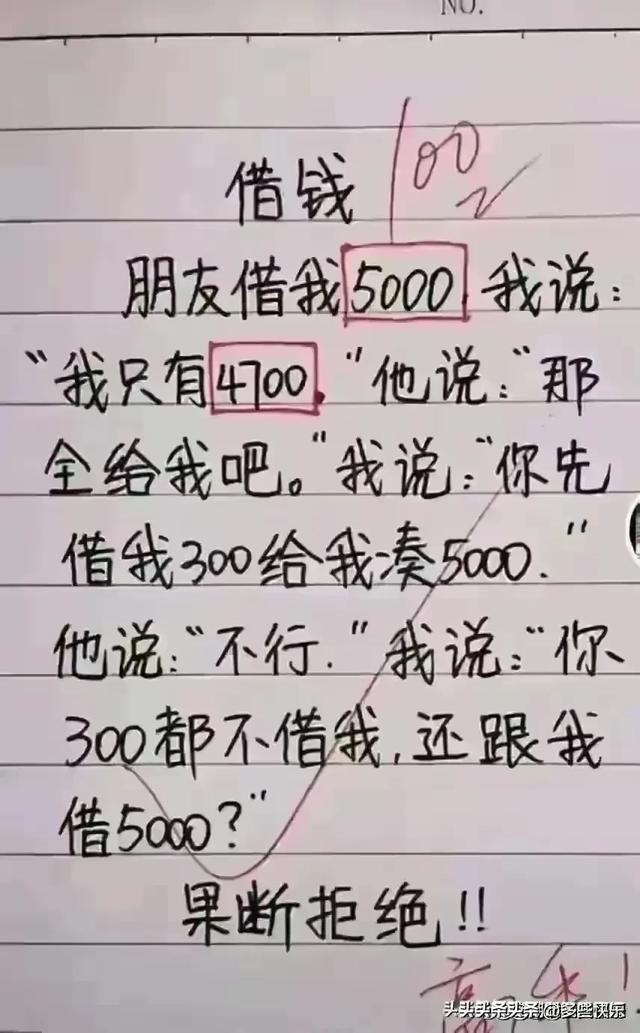 NO.
借钱 100
朋友借我5000，我说：
“我只有4700.”他说：“那
全给我吧。”我说：“你先
借我300给我凑5000.”
他说：“不行.”我说：“你
300都不借我，还跟我
借5000？”
果断拒绝！！
头条 @多些快乐